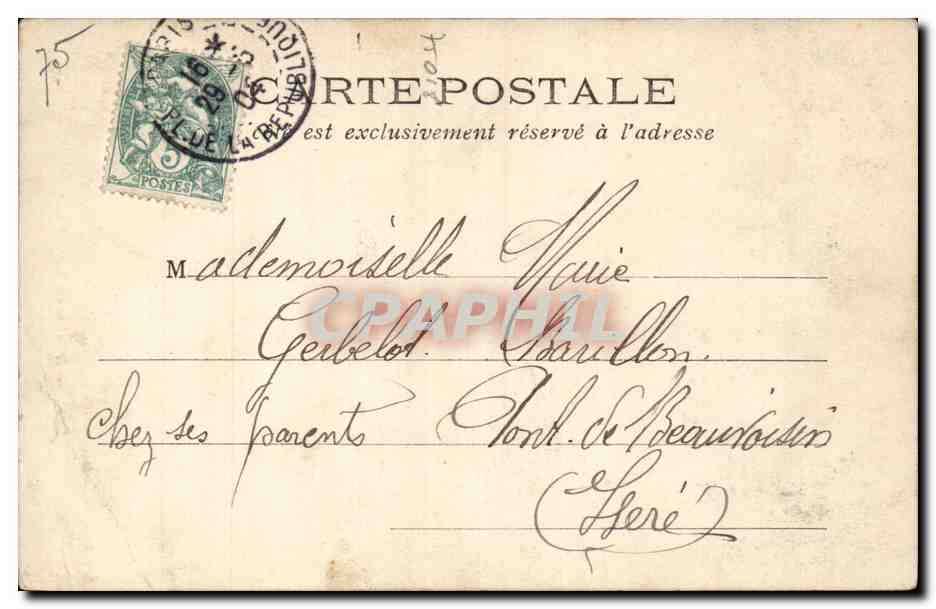 75
2104
PARIS
PL. DE LA REPUBLIQUE
* 16
29
04
5
POSTES
CARTE POSTALE
est exclusivement réservé à l'adresse
Mademoiselle Marie
CPAPHIL
Gerbelot Barillon
Chez ses parents Pont-de-Beauvoisin
(Iseré)